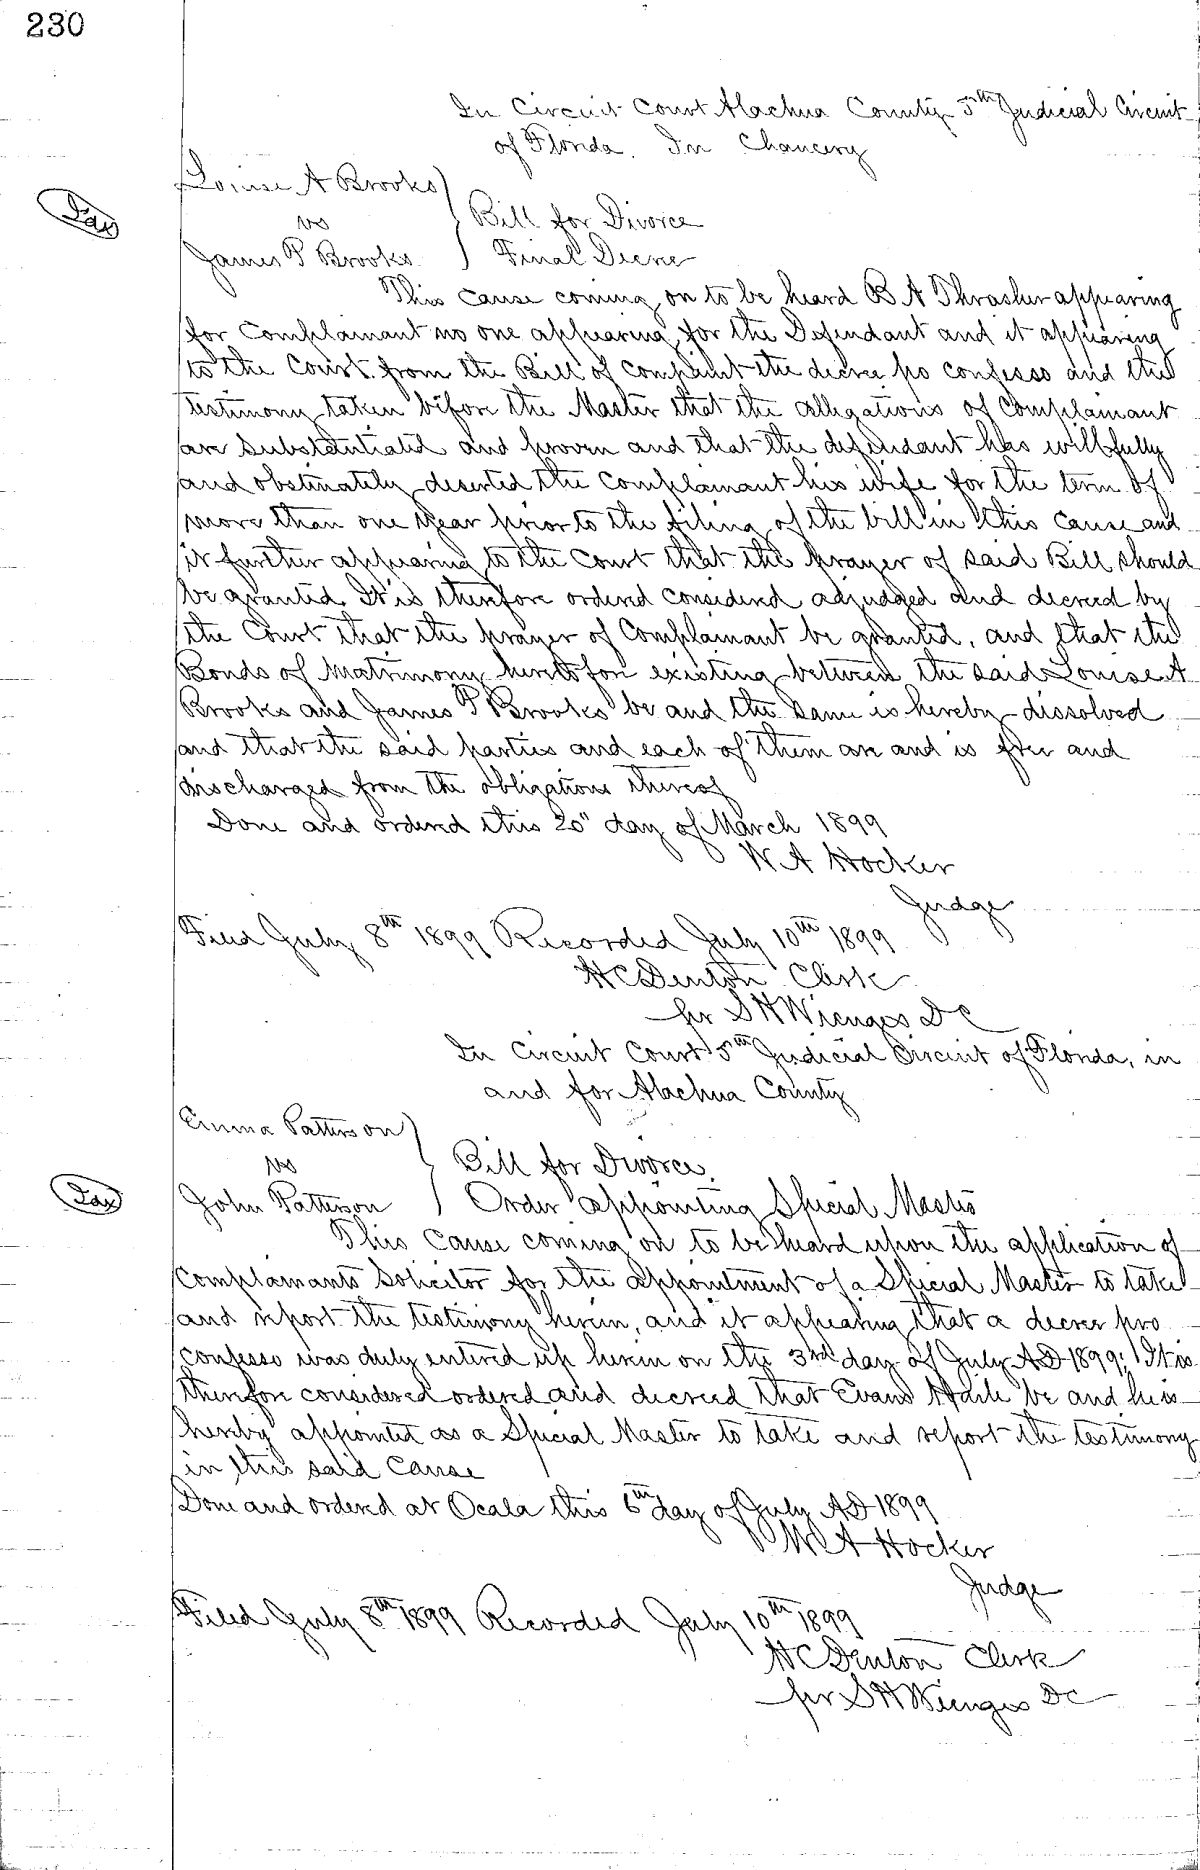 230
In Circuit Court Alachua County 5th Judicial Circuit
of Florida. In Chancery
Louise A Brooks
vs
Bill for Divorce
James P Brooks
Final Decree
This cause coming on to be heard B A Thrasher appearing
for Complainant no one appearing for the Defendant and it appearing
to the Court from the Bill of Complaint the decree pro confesso and the
testimony taken before the Master that the allegations of Complainant
are substantiated and proven and that the defendant has willfully
and obstinately deserted the Complainant his wife for the term of
more than one year prior to the filing of the bill in this cause and
it further appearing to the Court that the prayer of said Bill should
be granted. It is therefore ordered considered adjudged and decreed by
the Court that the prayer of Complainant be granted, and that the
Bonds of Matrimony heretofore existing between the said Louise A
Brooks and James P Brooks be and the same is hereby dissolved
and that the said parties and each of them are and is free and
discharged from the obligations thereof
Done and ordered this 20" day of March 1899
W A Hocker
Judge
Filed July 8th 1899 Recorded July 10th 1899
H C Denton Clerk
per S H Wienges D C
In Circuit Court 5th Judicial Circuit of Florida, in
and for Alachua County
Emma Patterson
vs
Bill for Divorce.
John Patterson
Order appointing Special Master
This cause coming on to be heard upon the application of
Complainants Solicitor for the appointment of a Special Master to take
and report the testimony herein, and it appearing that a decree pro
confesso was duly entered up herein on the 3rd day of July AD 1899; It is
therefore considered ordered and decreed that Evans Haile be and he is
hereby appointed as a Special Master to take and report the testimony
in this said cause
Done and ordered at Ocala this 6th day of July AD 1899
W A Hocker
Judge
Filed July 8th 1899 Recorded July 10th 1899
H C Denton Clerk
per S H Wienges D C